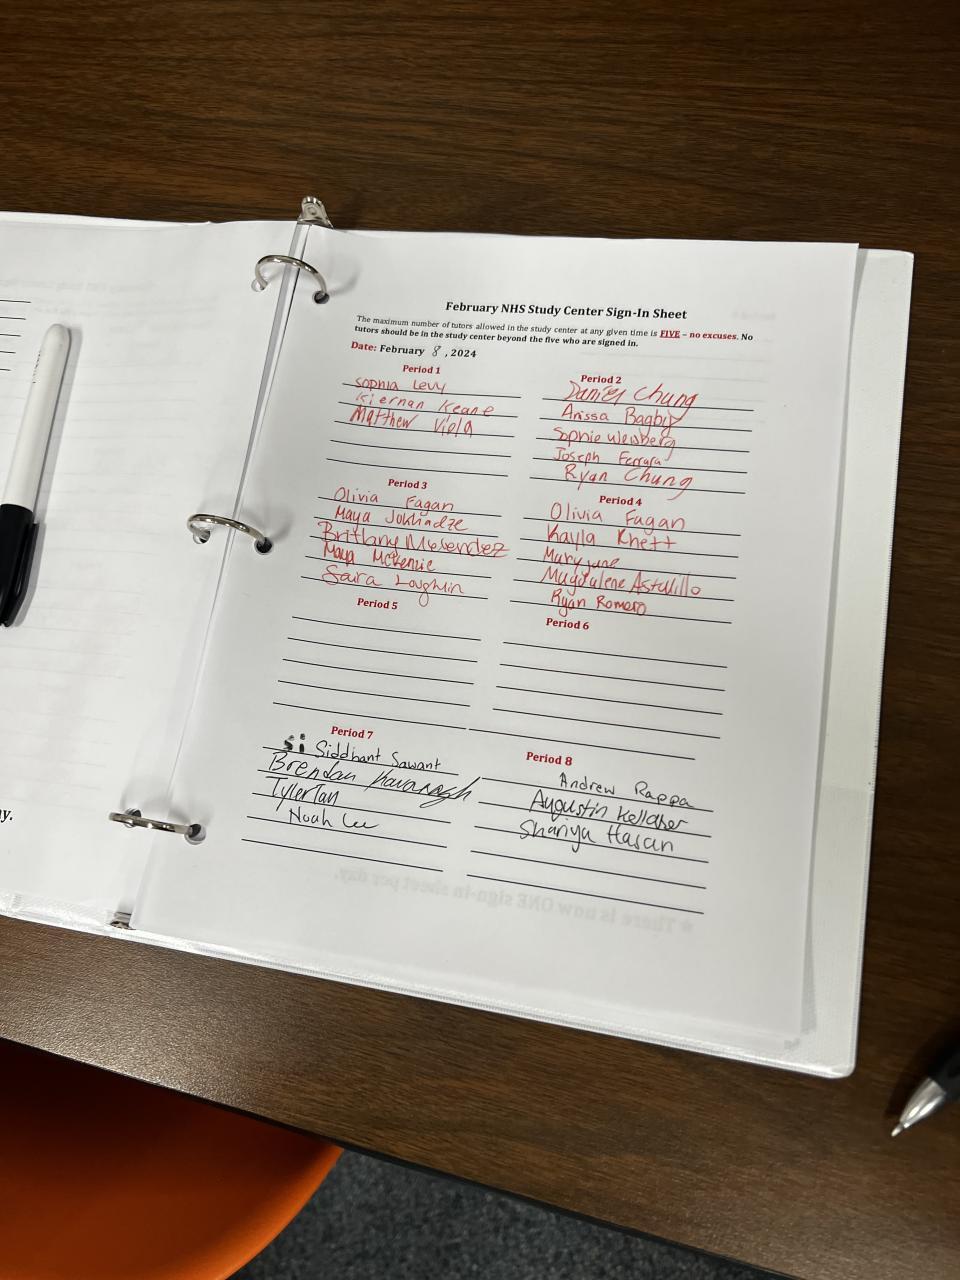 February NHS Study Center Sign-In Sheet
The maximum number of tutors allowed in the study center at any given time is FIVE – no excuses. No
tutors should be in the study center beyond the five who are signed in.
Date: February 8, 2024
Period 1
Sophia Levy
Kiernan Keane
Matthew Viola
Period 2
Daniel Chung
Arissa Bagby
Sophie Weisberg
Joseph Ferrara
Ryan Chung
Period 3
Olivia Fagan
Maya Jokhadze
Brittany Melendez
Maya McKenzie
Saira Loughlin
Period 4
Olivia Fagan
Kayla Rhett
Mary Jane
Magdalene Astudillo
Ryan Romero
Period 5
Period 6
Period 7
Si Siddhant Sawant
Brendan Kavanagh
Tyler Tan
Noah Lee
Period 8
Andrew Rappa
Augustin Kelleher
Shariya Hasan
★ There is now ONE sign-in sheet per day.
y.